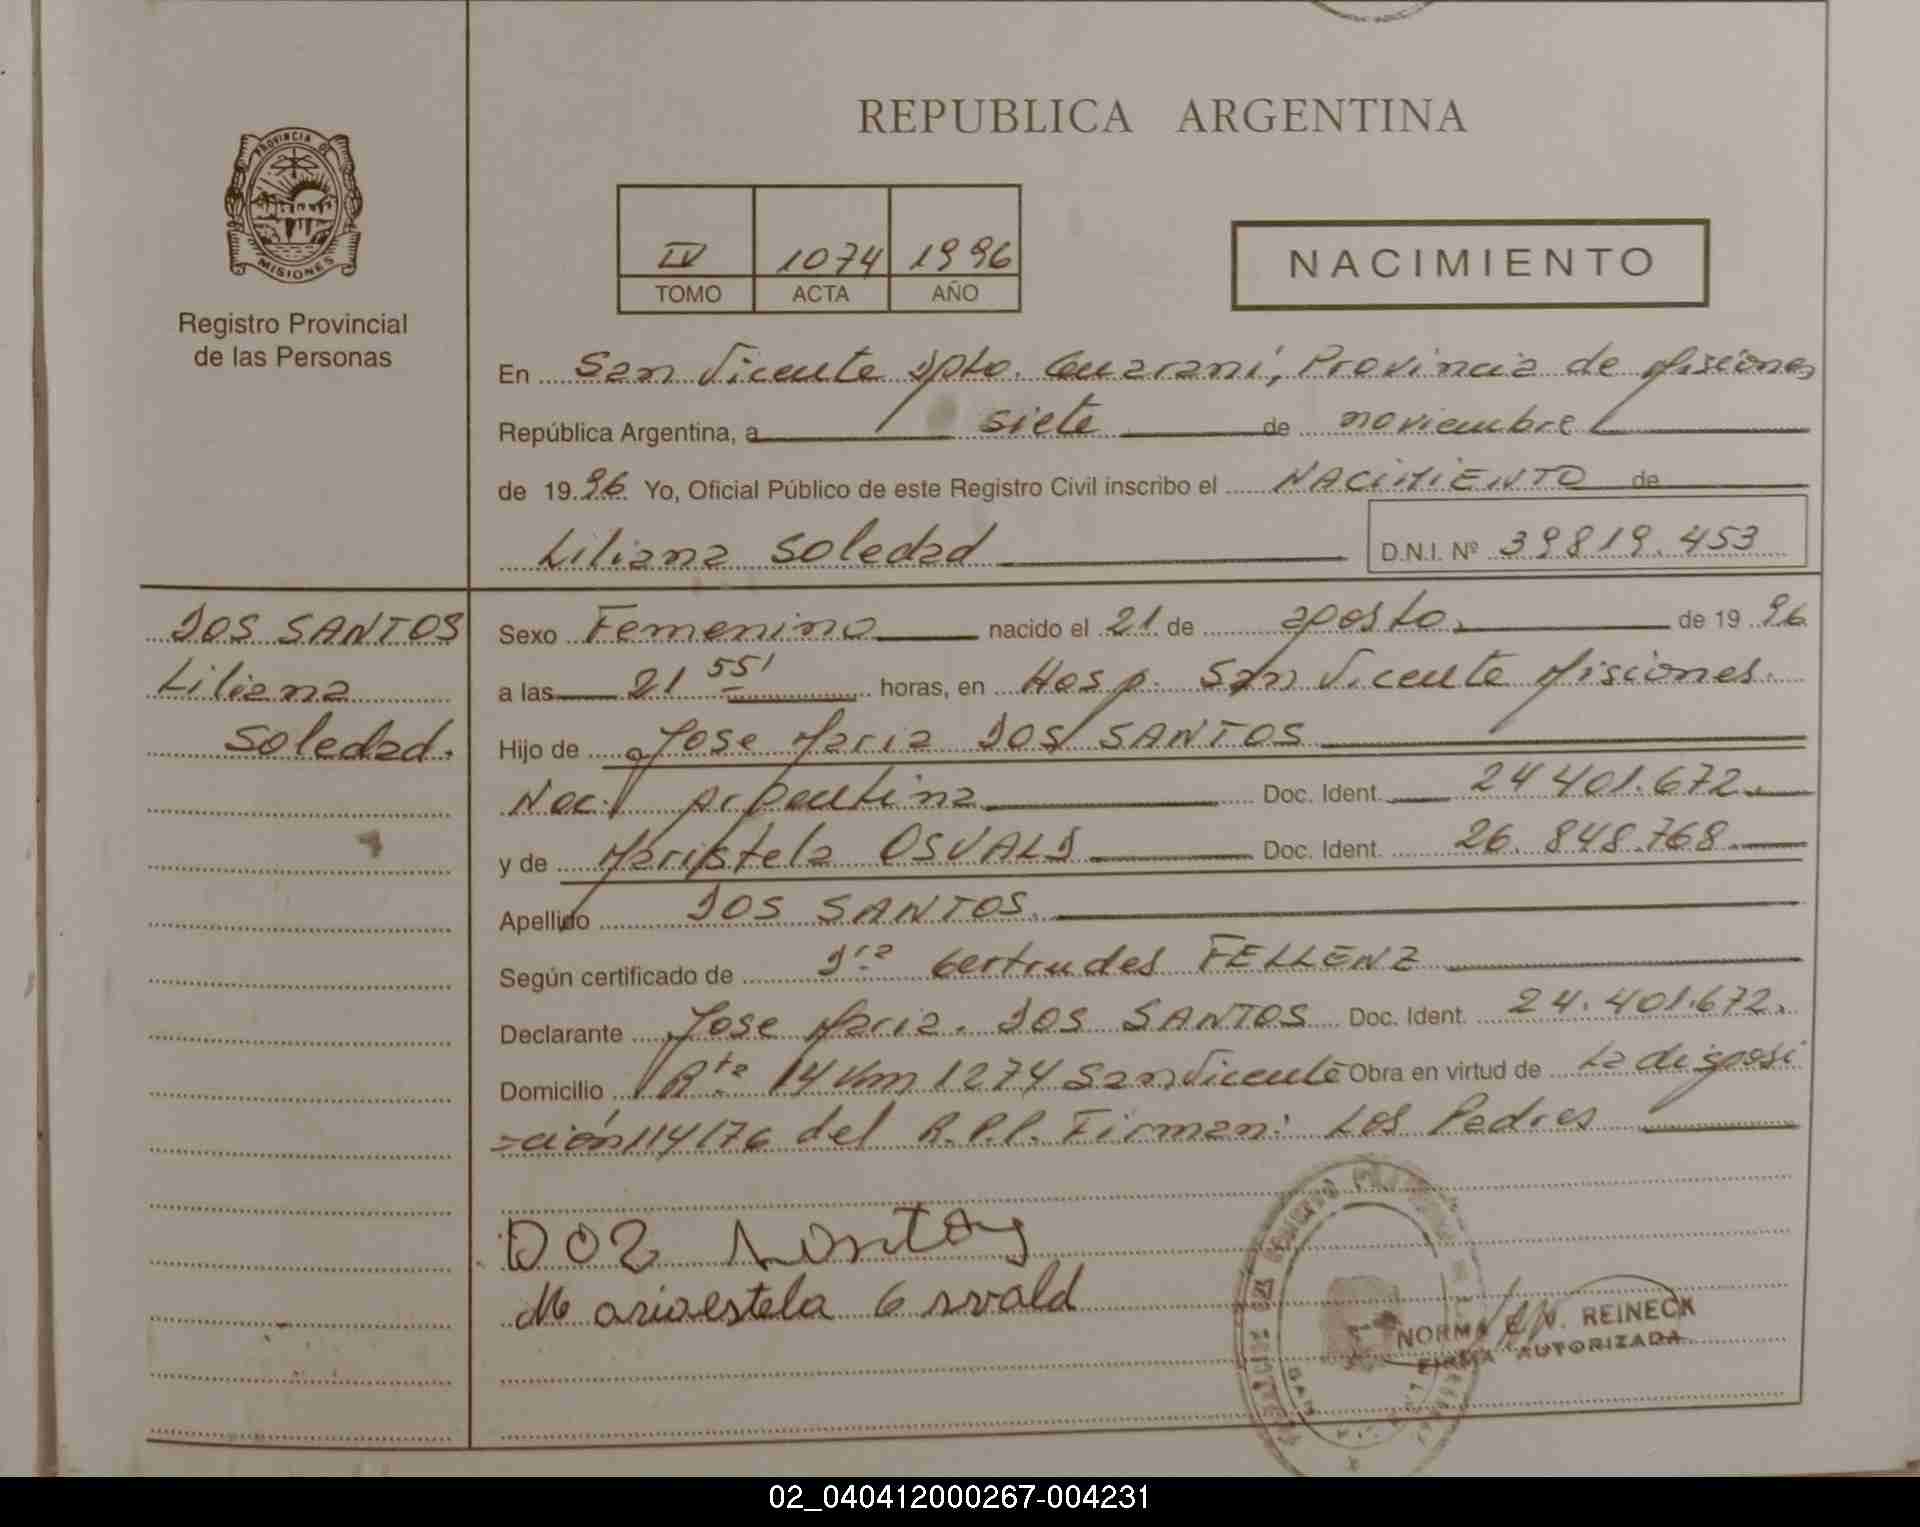 REPUBLICA ARGENTINA
PROVINCIA DE
MISIONES
Registro Provincial
de las Personas
IV 1074 1996
TOMO ACTA AÑO
NACIMIENTO
En San Vicente Dpto. Guarani, Provincia de Misiones
República Argentina, a siete de noviembre
de 1996 Yo, Oficial Público de este Registro Civil inscribo el NACIMIENTO de
Liliana Soledad D.N.I. Nº 39819.453
DOS SANTOS
Liliana
Soledad.
Sexo Femenino nacido el 21 de agosto. de 1996
a las 21 55' horas, en Hosp. San Vicente Misiones.
Hijo de Jose Maria DOS SANTOS
Nac. Argentina Doc. Ident. 24 401.672.
y de Maristela OSVALD Doc. Ident. 26.848.768.
Apellido DOS SANTOS.
Según certificado de Dra Gertrudes FELLENZ
Declarante Jose Maria. DOS SANTOS Doc. Ident. 24.401.672.
Domicilio Rta 14 Km 1274 San Vicente Obra en virtud de La disposi
=ción 114/76 del R.P.P. Firman: Los Padres
DOS santos
Mariaestela Osvald
NORMA REINECK
FIRMA AUTORIZADA
02_040412000267-004231